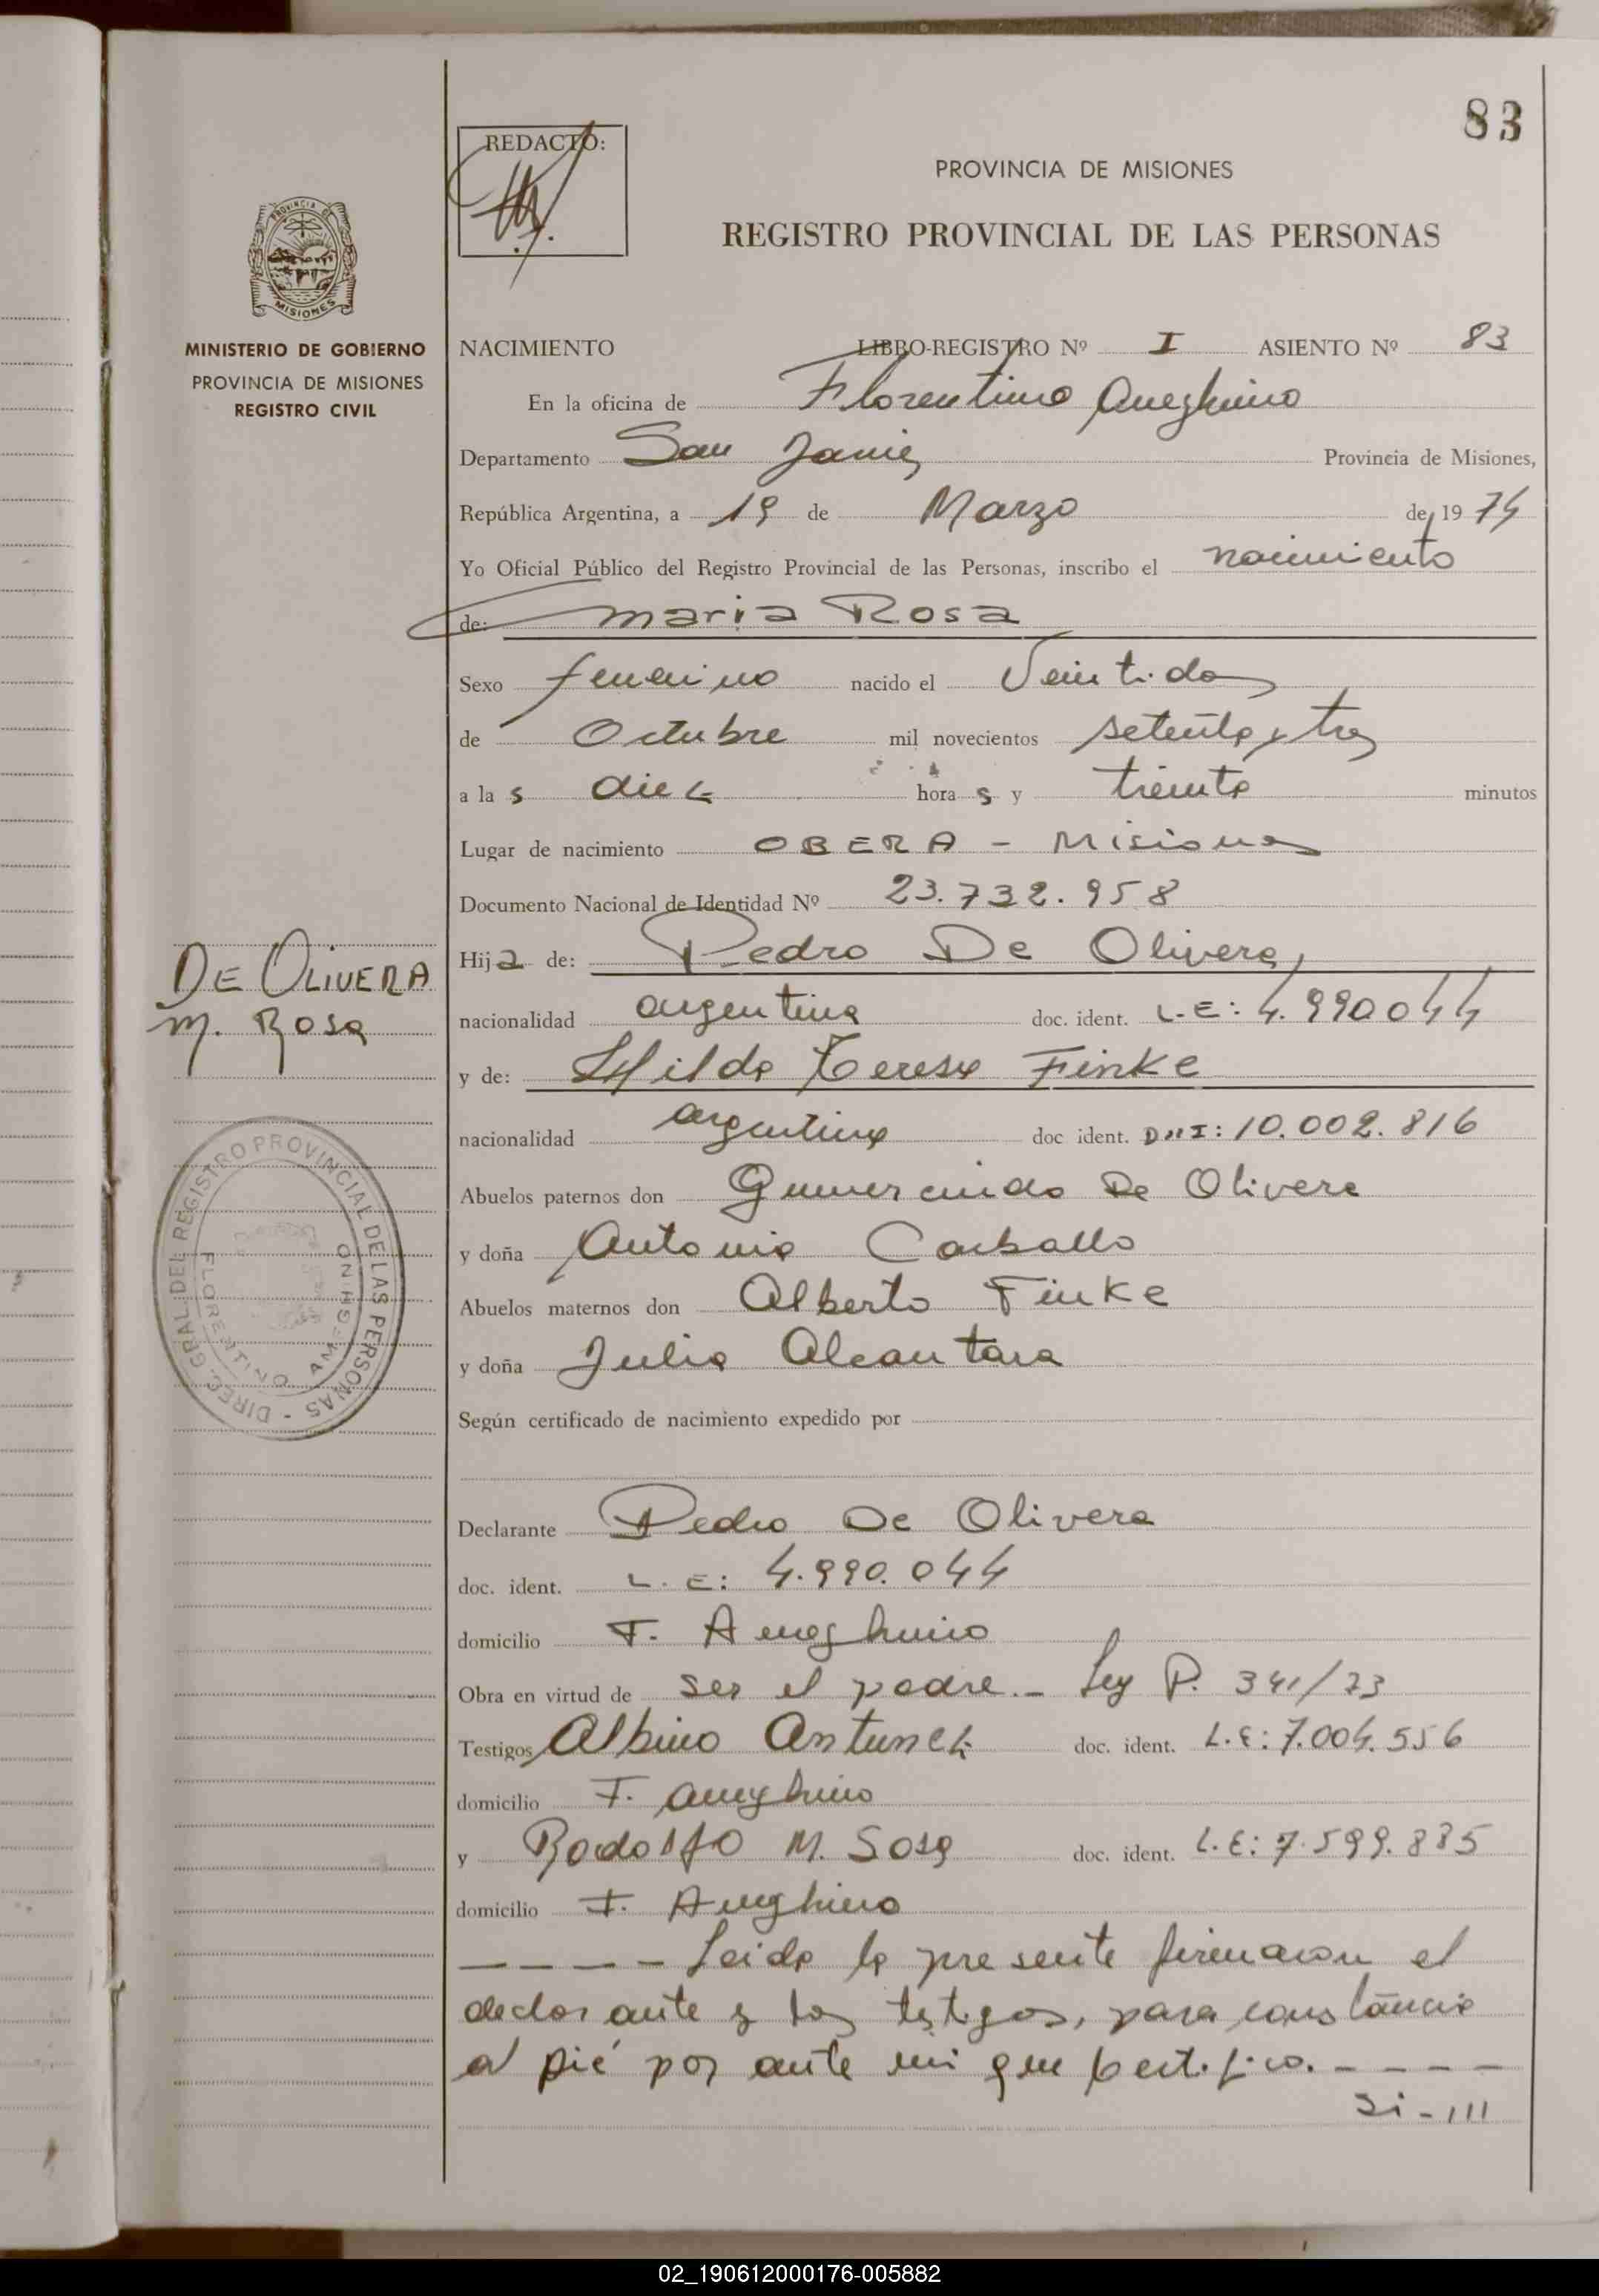 83
REDACTÓ:
PROVINCIA DE MISIONES
REGISTRO PROVINCIAL DE LAS PERSONAS
PROVINCIA DE
MISIONES
MINISTERIO DE GOBIERNO
PROVINCIA DE MISIONES
REGISTRO CIVIL
NACIMIENTO LIBRO-REGISTRO Nº I ASIENTO Nº 83
En la oficina de Florentino Ameghino
Departamento San Javier Provincia de Misiones,
República Argentina, a 19 de Marzo de 1974
Yo Oficial Público del Registro Provincial de las Personas, inscribo el nacimiento
de: Maria Rosa
Sexo femenino nacido el Veintidos
de Octubre mil novecientos setenta y tres
a las diez horas y treinta minutos
Lugar de nacimiento OBERA - Misiones
Documento Nacional de Identidad Nº 23.732.958
Hija de: Pedro De Olivera,
nacionalidad argentina doc. ident. L.E: 4.990044
y de: Hilda Teresa Finke
nacionalidad argentina doc ident. DNI: 10.002.816
Abuelos paternos don Gumercindo De Olivera
y doña Antonia Carballo
Abuelos maternos don Alberto Finke
y doña Julia Alcantara
Según certificado de nacimiento expedido por
Declarante Pedro De Olivera
doc. ident. L.E: 4.990.044
domicilio F. Ameghino
Obra en virtud de ser el padre.- Ley P. 341/73
Testigos Albino Antunez doc. ident. L.E: 7.004.556
domicilio F. Ameghino
y Rodolfo M. Sosa doc. ident. L.E: 7.599.885
domicilio F. Ameghino
- - - - - Leida la presente firmaron el
declarante y los testigos, para constancia
al pié por ante mi que certifico. - - - -
Si-III
DE OLIVERA
M. Rosa
DIREC. GRAL. DEL REGISTRO PROVINCIAL DE LAS PERSONAS -
FLORENTINO AMEGHINO
02_190612000176-005882